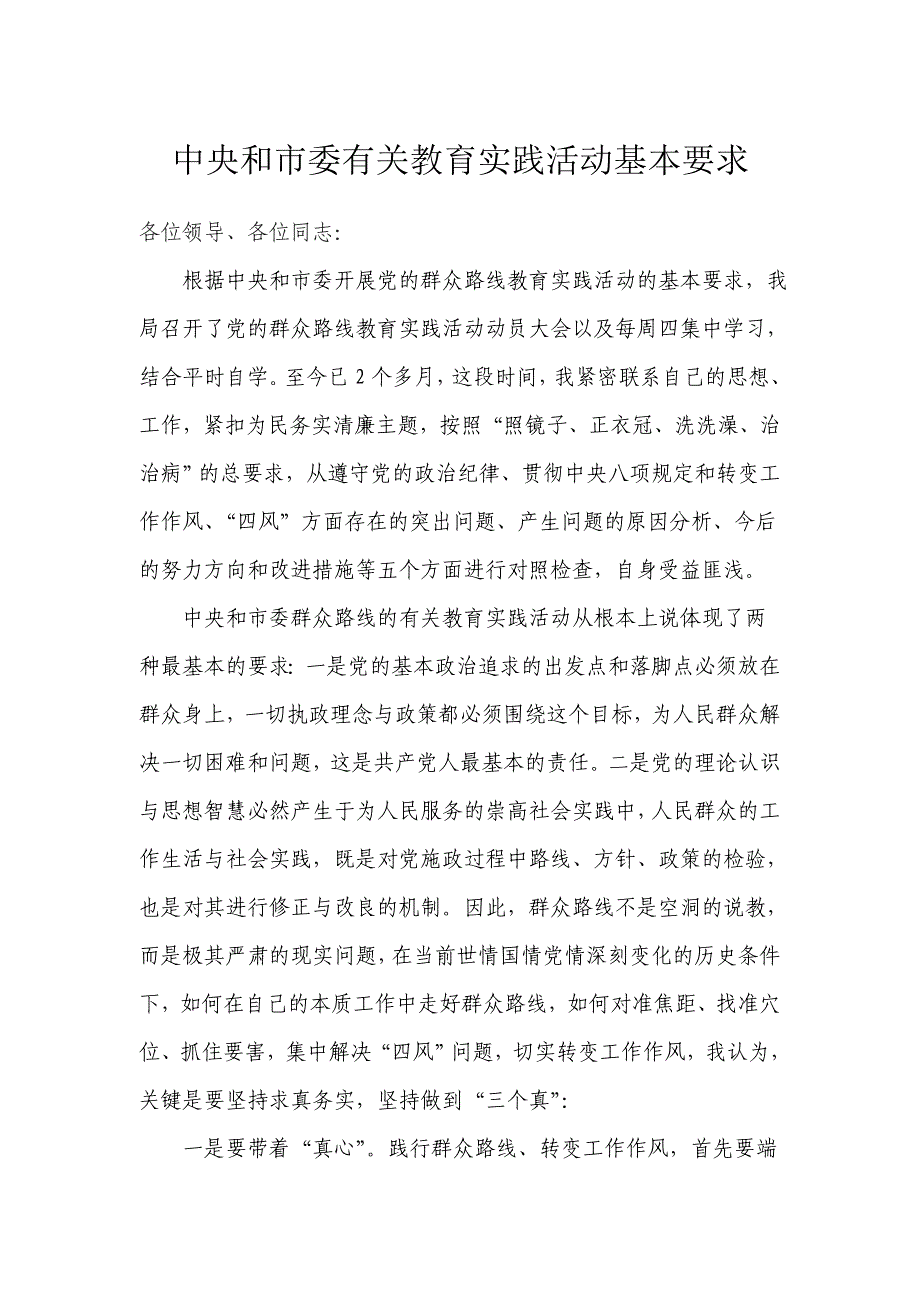 中央和市委有关教育实践活动基本要求
各位领导、各位同志：
根据中央和市委开展党的群众路线教育实践活动的基本要求，我
局召开了党的群众路线教育实践活动动员大会以及每周四集中学习，
结合平时自学。至今已2个多月，这段时间，我紧密联系自己的思想、
工作，紧扣为民务实清廉主题，按照“照镜子、正衣冠、洗洗澡、治
治病”的总要求，从遵守党的政治纪律、贯彻中央八项规定和转变工
作作风、“四风”方面存在的突出问题、产生问题的原因分析、今后
的努力方向和改进措施等五个方面进行对照检查，自身受益匪浅。
中央和市委群众路线的有关教育实践活动从根本上说体现了两
种最基本的要求：一是党的基本政治追求的出发点和落脚点必须放在
群众身上，一切执政理念与政策都必须围绕这个目标，为人民群众解
决一切困难和问题，这是共产党人最基本的责任。二是党的理论认识
与思想智慧必然产生于为人民服务的崇高社会实践中，人民群众的工
作生活与社会实践，既是对党施政过程中路线、方针、政策的检验，
也是对其进行修正与改良的机制。因此，群众路线不是空洞的说教，
而是极其严肃的现实问题，在当前世情国情党情深刻变化的历史条件
下，如何在自己的本质工作中走好群众路线，如何对准焦距、找准穴
位、抓住要害，集中解决“四风”问题，切实转变工作作风，我认为，
关键是要坚持求真务实，坚持做到“三个真”：
一是要带着“真心”。践行群众路线、转变工作作风，首先要端